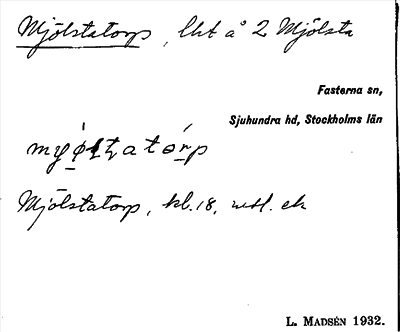 Mjölstatorp, lht å 2 Mjölsta
Fasterna sn,
Sjuhundra hd, Stockholms län
Mjölstatorp, kl. 18, ek
L. MADSÉN 1932.